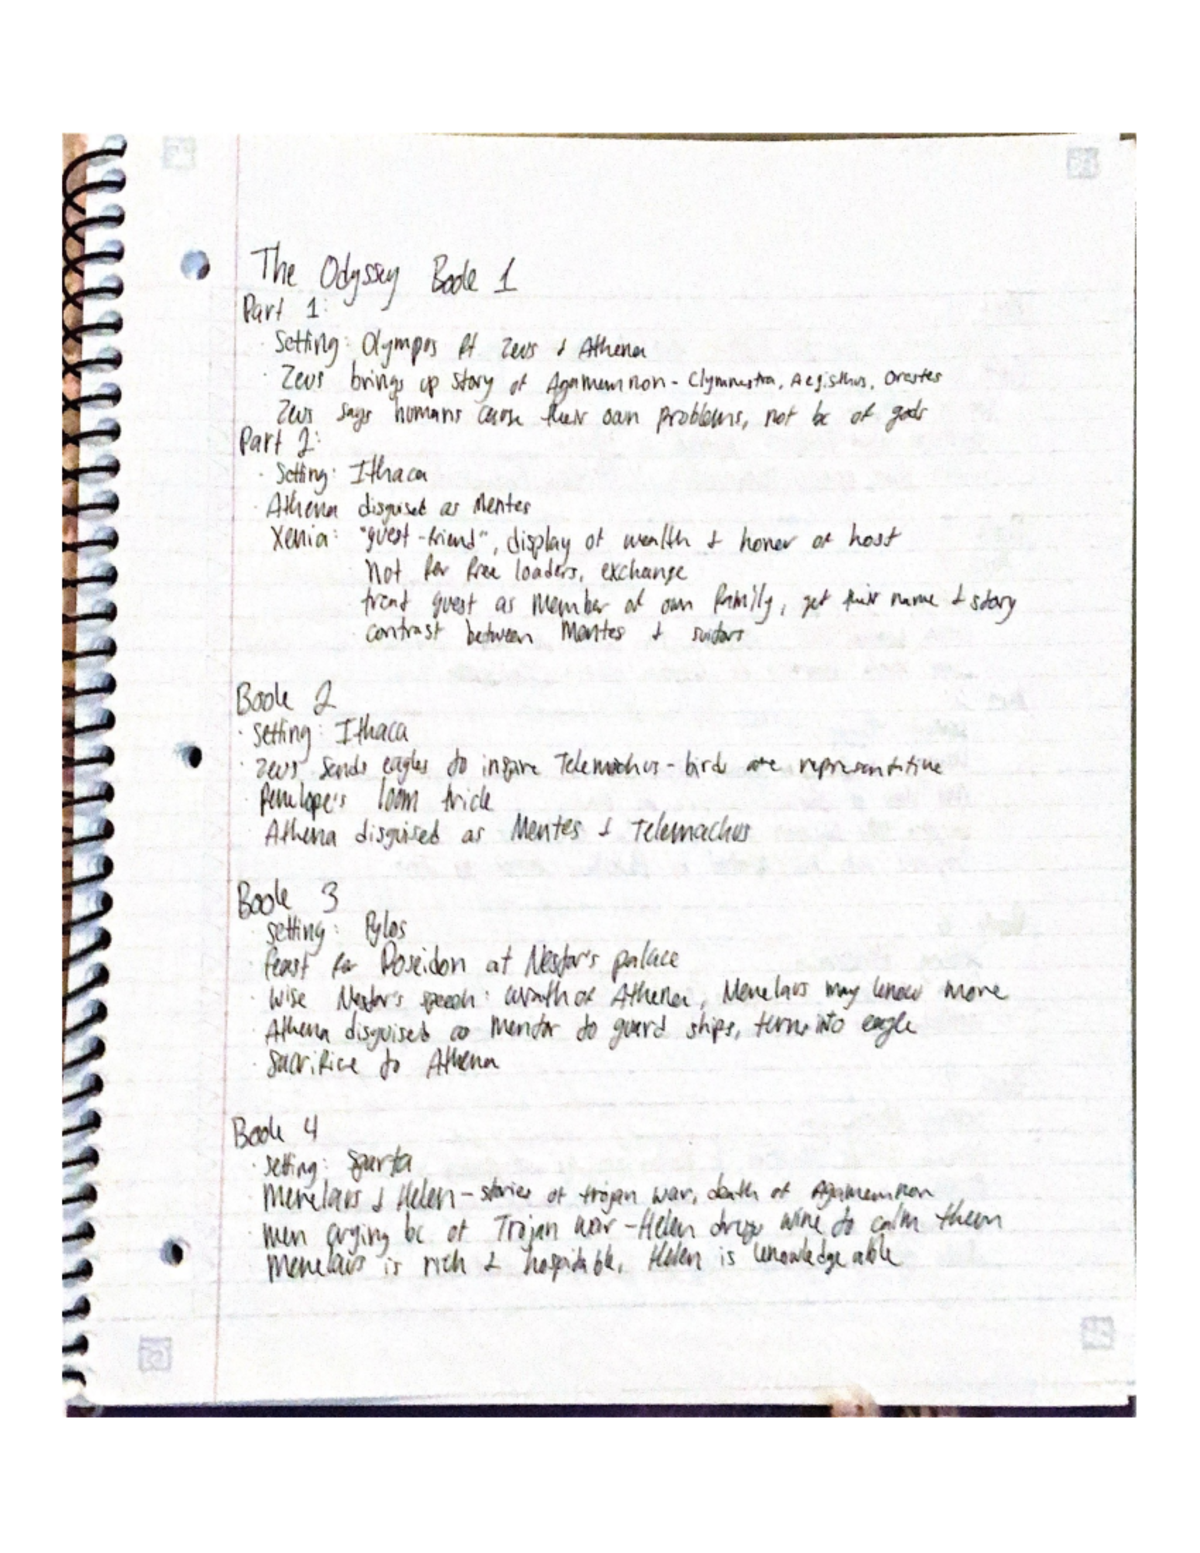 The Odyssey Book 1
Part 1:
· Setting: Olympos ft Zeus + Athena
· Zeus brings up story of Agamemnon - Clymnestra, Aegisthus, Orestes
· Zeus says humans cause their own problems, not bc of gods
Part 2:
· Setting: Ithaca
· Athena disguised as Mentes
· Xenia: "guest-friend", display of wealth + honor of host
not for free loaders, exchange
treat guest as member of own family, get their name + story
· contrast between Mentes + suitors
Book 2
· setting: Ithaca
· Zeus sends eagles to inspire Telemachus - birds are representitive
· Penelope's loom trick
· Athena disguised as Mentes + Telemachus
Book 3
· setting: Pylos
· feast for Poseidon at Nestor's palace
· wise Nestor's speech: wrath of Athena, Menelaus may know more
· Athena disguised as mentor to guard ships, turns into eagle
· sacrifice to Athena
Book 4
· setting: Sparta
· Menelaus + Helen - stories of trojan war, death of Agamemnon
· men crying bc of Trojan war - Helen drugs wine to calm them
· Menelaus is rich + hospitable, Helen is knowledgeable